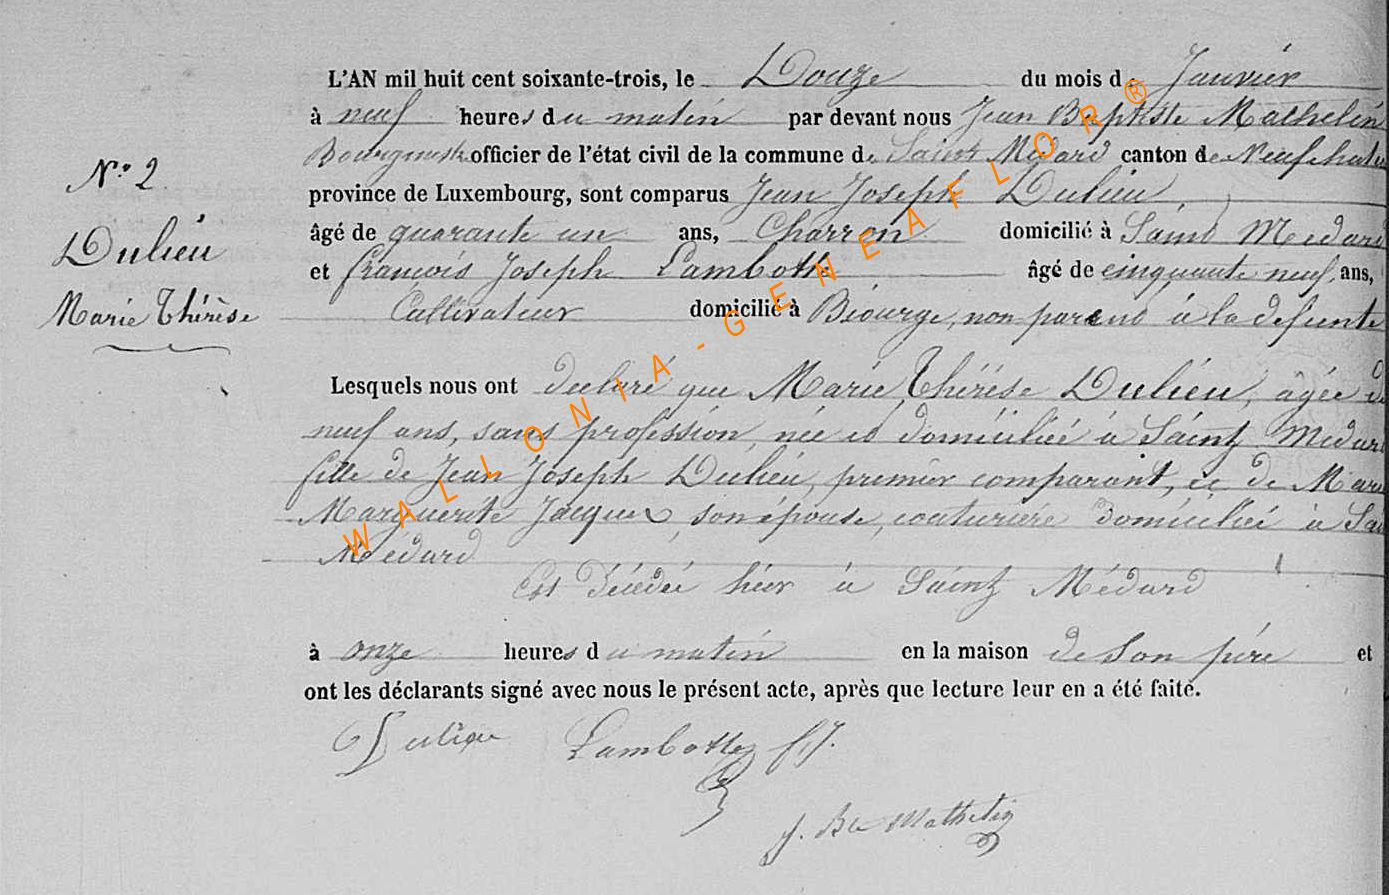 L'AN mil huit cent soixante-trois, le Douze du mois de Janvier
à neuf heures du matin par devant nous Jean Baptiste Mathelin
Bourgmestre officier de l'état civil de la commune de Saint Médard canton de Neufchateau
N.o 2
province de Luxembourg, sont comparus Jean Joseph Dulieu,
Dulieu
âgé de quarante un ans, Charron domicilié à Saint Médard
et françois Joseph Lambotte âgé de cinquante neuf ans,
Marie Thérèse
Cultivateur domicilié à Biourge, non parent à la défunte
Lesquels nous ont déclaré que Marie Thérèse Dulieu, âgée de
neuf ans, sans profession, née et domiciliée à Saint Médard
fille de Jean Joseph Dulieu, premier comparant, et de Marie
Marguerite Jacques, son épouse, couturière domiciliée à
Médard
Est décédée hier à Saint Médard
à onze heures du matin en la maison de son père et
ont les déclarants signé avec nous le présent acte, après que lecture leur en a été faite.
Dulieu Lambotte fJ.
J. Bte Mathelin
WALLONIA-GENEAFLOR®